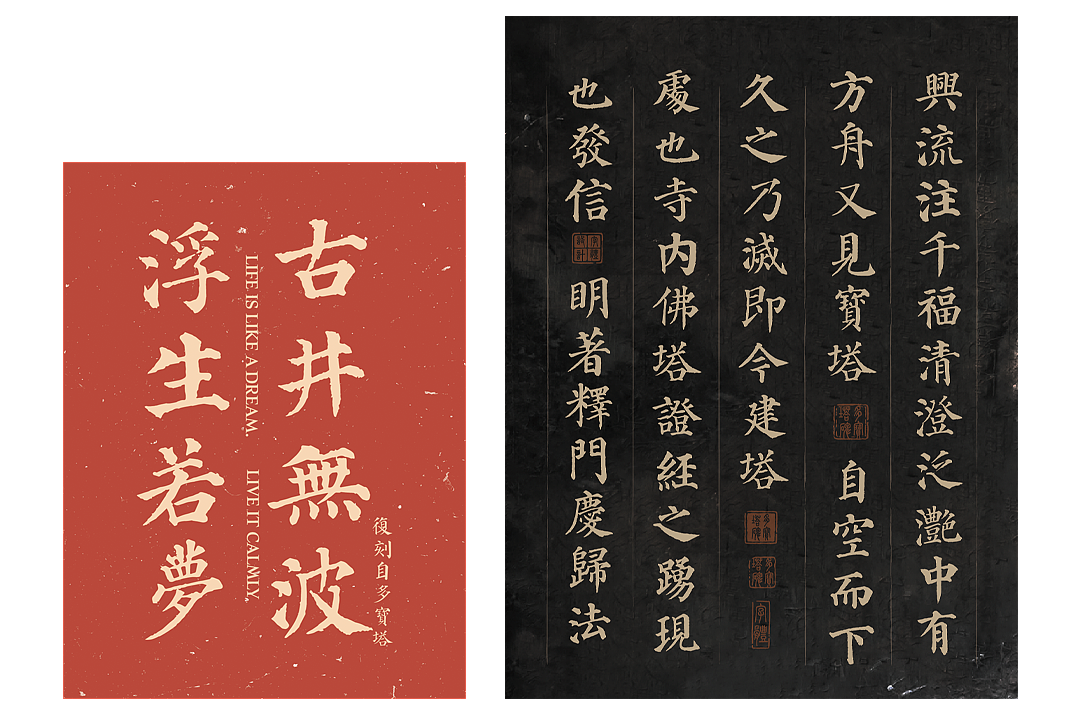 古井無波
浮生若夢
LIFE IS LIKE A DREAM. LIVE IT CALMLY.
復刻自多寶塔
興流注千福清澄泛灧中有
方舟又見寶塔
多寶塔碑
自空而下
久之乃滅即今建塔
多寶塔碑
多寶塔碑
字體
處也寺内佛塔證経之踴現
也發信
明著釋門慶歸法